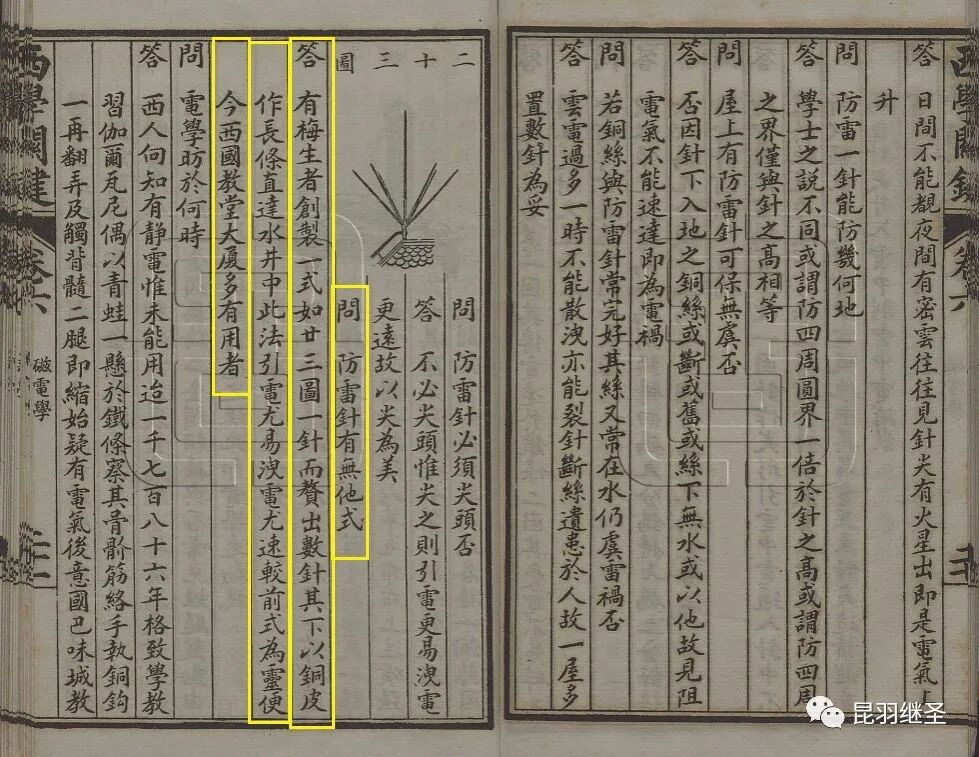 西學關鍵 卷六
答 日間不能覩夜間有密雲往往見針尖有火星出即是電氣上
升
問 防雷一針能防幾何地
答 學士之說不同或謂防四周圓界一倍於針之高或謂防四周
之界僅與針之高相等
問 屋上有防雷針可保無虞否
答 否因針下入地之銅絲或斷或舊或絲下無水或以他故見阻
電氣不能速達即為電禍
問 若銅絲與防雷針常完好其絲又常在水仍虞雷禍否
答 雲電過多一時不能散洩亦能裂針斷絲遺患於人故一屋多
置數針為妥
二十三圖
問 防雷針必須尖頭否
答 不必尖頭惟尖之則引電更易洩電
更遠故以尖為美
問 防雷針有無他式
答 有梅生者創製一式如廿三圖一針而贅出數針其下以銅皮
作長條直達水井中此法引電尤易洩電尤速較前式為靈便
今西國教堂大廈多有用者
問 電學昉於何時
答 西人向知有靜電惟未能用迨一千七百八十六年格致學教
習伽爾瓦尼偶以青蛙一懸於鐵條察其骨骱筋絡手執銅鈎
一再翻弄及觸背髓二腿即縮始疑有電氣後意國巴味城教
西學關鍵 卷六 磁電學
昆羽继圣